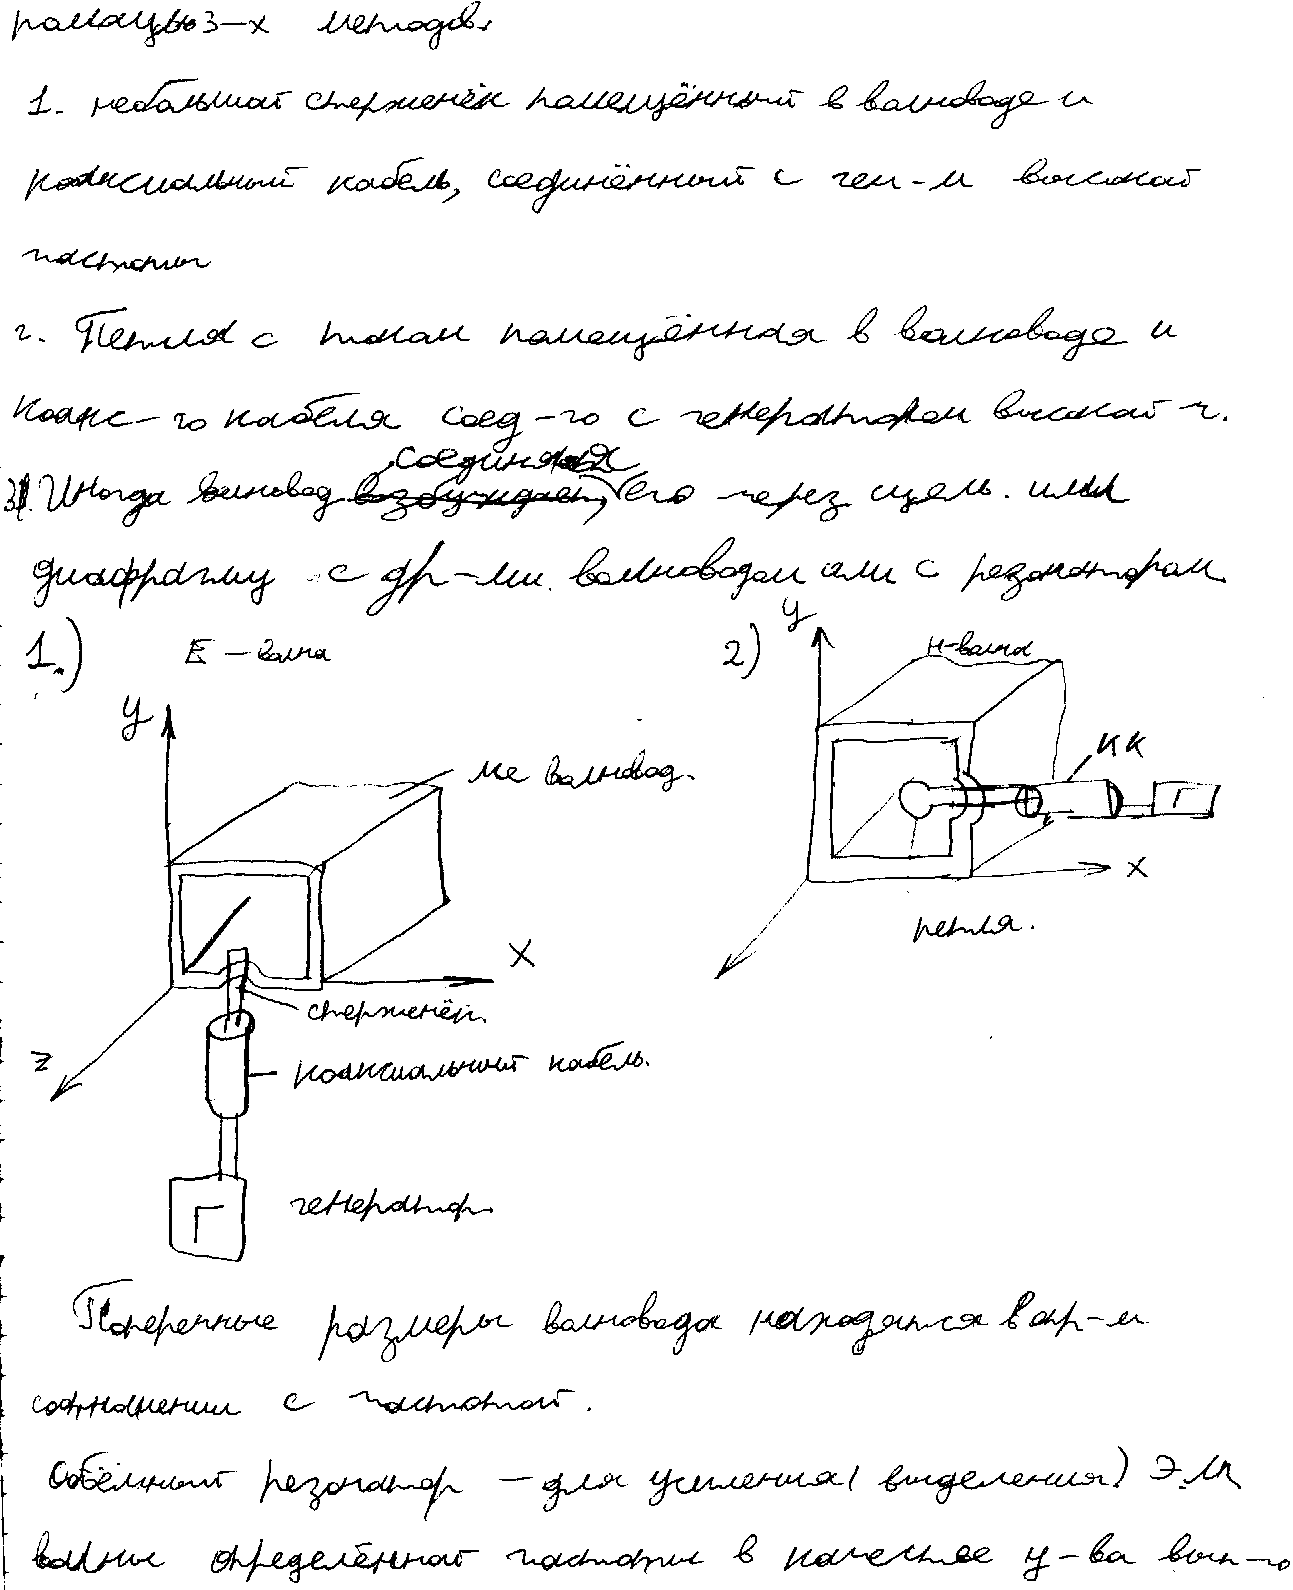 помощью 3-х методов.
1. небольшой стерженёк помещённый в волноводе и
коаксиальный кабель, соединённый с ген-м высокой
частоты
2. Петля с током помещённая в волноводе и
коакс-го кабеля соед-го с генератором высокой ч.
соединяя
3. Иногда волновод возбуждает, его через щель или
диафрагму с др-ми волноводом или с резонатором
1.) E - волна 2) y H-волна
y
ме волновод.
КК
Г
x
петля.
x
стерженёк.
z
коаксиальный кабель.
Г генератор.
Поперечные размеры волновода находятся в опр-м
соотношении с частотой.
Объёмный резонатор - для усиления (выделения) ЭМ
волны определённой частоты в качестве у-ва выс-го